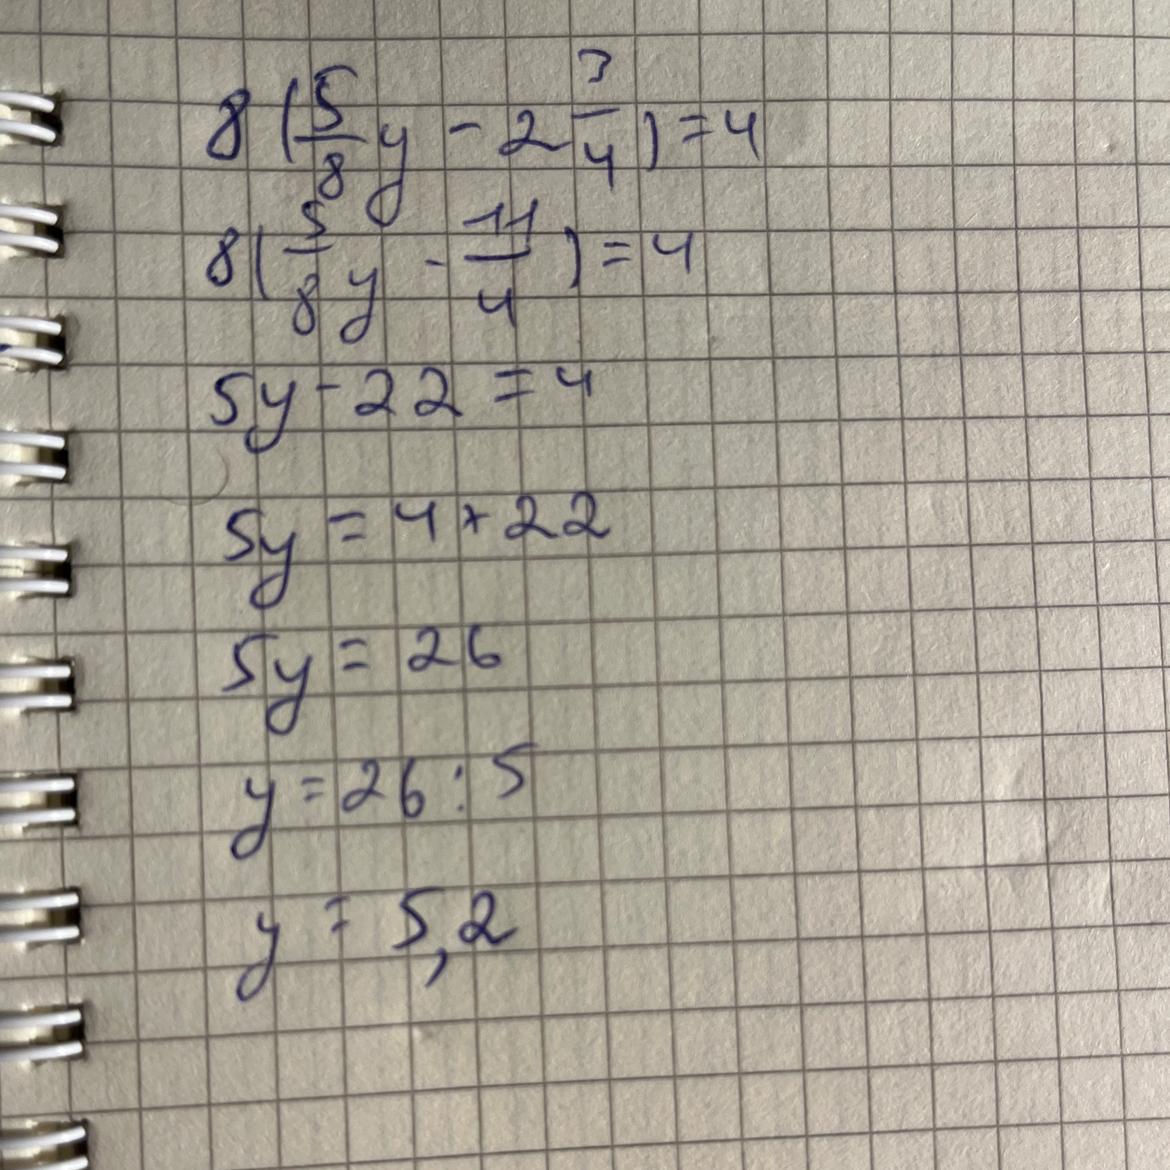 8(5/8 y - 2 3/4) = 4
8(5/8 y - 11/4) = 4
5y - 22 = 4
5y = 4 + 22
5y = 26
y = 26 : 5
y = 5,2